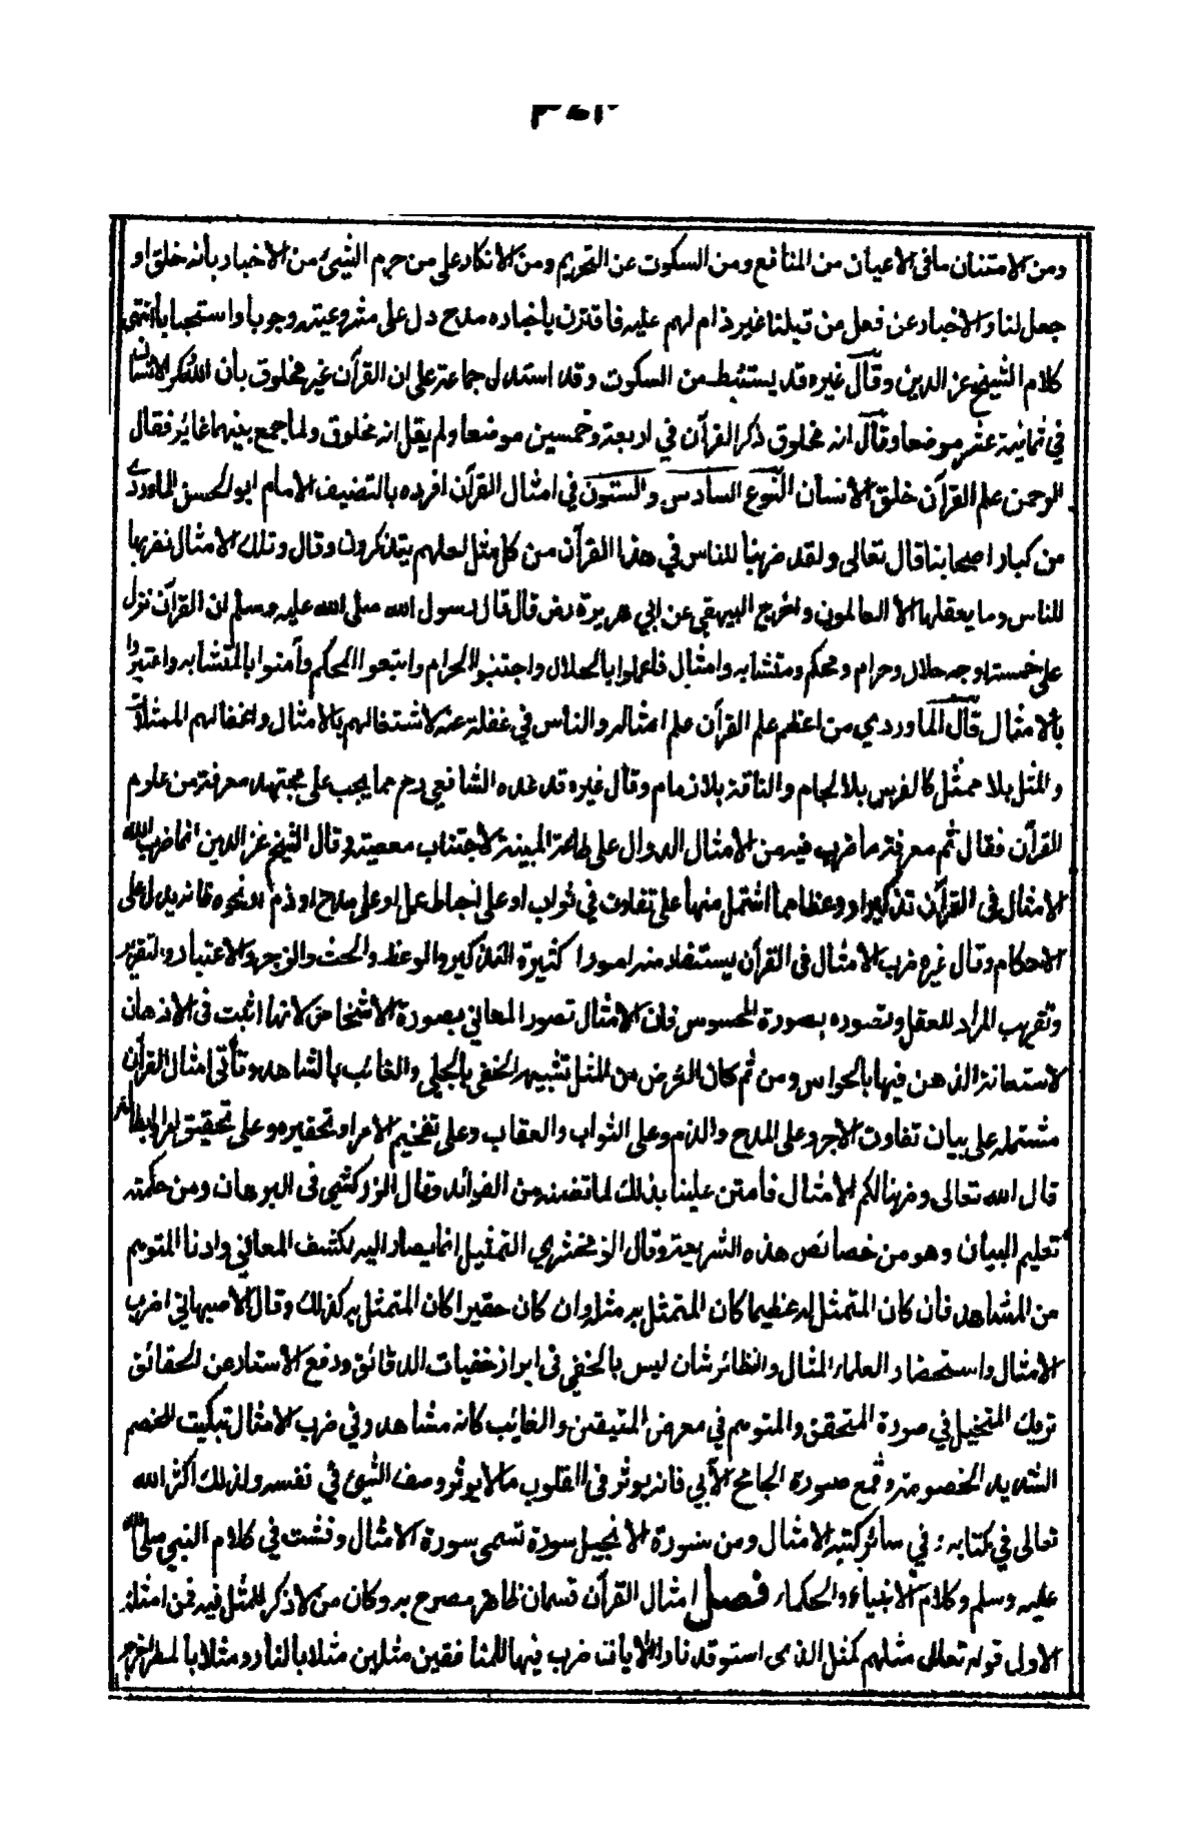 ومن الامتنان مافى الاعيان من المنافع ومن السكوت عن التحريم ومن الانكار على من حرم الشيئ من الاخبار بأنه خلق او
جعل لنا والاخبار عن فعل من قبلنا غير ذام لهم عليه فاقترن باخباره مدح دل على مشروعيته وجوبا واستحبابا انتهى
كلام الشيخ عز الدين وقال غيره قد يستنبط من السكوت وقد استدل جماعة على ان القرآن غير مخلوق بأن الله ذكر الانسان
في ثمانية عشر موضعا وقال انه مخلوق ذكر القرآن في اربعة وخمسين موضعا ولم يقل انه مخلوق ولما جمع بينهما غاير فقال
الرحمن علم القرآن خلق الانسان النوع السادس والستون في امثال القرآن افرده بالتصنيف الامام ابو الحسن الماوردي
من كبار اصحابنا قال تعالى ولقد ضربنا للناس في هذا القرآن من كل مثل لعلهم يتذكرون وقال وتلك الامثال نضربها
للناس وما يعقلها الا العالمون واخرج البيهقي عن ابي هريرة رض قال قال رسول الله صلى الله عليه وسلم ان القرآن نزل
على خمسة اوجه حلال وحرام ومحكم ومتشابه وامثال فاعملوا بالحلال واجتنبوا الحرام واتبعوا المحكم وآمنوا بالمتشابه واعتبروا
بالامثال قال الماوردي من اعظم علم القرآن علم امثاله والناس في غفلة عنه لاشتغالهم بالامثال واغفالهم الممثلات
والمثل بلا ممثل كالفرس بلا لجام والناقة بلا زمام وقال غيره قد عده الشافعي رح مما يجب على مجتهد معرفته من علوم
القرآن فقال ثم معرفة ما ضرب فيه من الامثال الدوال على طاعة المبينة لاجتناب معصيته وقال الشيخ عز الدين انما ضرب الله
الامثال فى القرآن تذكيرا ووعظا مما اشتمل منها على تفاوت في ثواب او على احباط عمل او على مدح او ذم او نحوه فانه يدل على
الاحكام وقال غيره ضرب الامثال فى القرآن يستفاد منه امورا كثيرة التذكير والوعظ والحث والزجر والاعتبار والتقرير
وتقريب المراد للعقل وتصوره بصورة المحسوس فان الامثال تصور المعاني بصورة الاشخاص لانها اثبت فى الاذهان
لاستعانة الذهن فيها بالحواس ومن ثم كان الغرض من المثل تشبيه الخفى بالجلي والغائب بالشاهد وتأتى امثال القرآن
مشتملة على بيان تفاوت الاجر وعلى المدح والذم وعلى الثواب والعقاب وعلى تفخيم الامر او تحقيره وعلى تحقيق امر او ابطاله
قال الله تعالى وضربنا لكم الامثال فامتن علينا بذلك لما تضمنه من الفوائد وقال الزركشي فى البرهان ومن حكمته
تعليم البيان وهو من خصائص هذه الشريعة وقال الزمخشري التمثيل انما يصار اليه لكشف المعاني وادنا المتوهم
من المشاهد فان كان المتمثل له عظيما كان المتمثل به مثله وان كان حقيرا كان المتمثل به كذلك وقال الاصبهاني لضرب
الامثال واستحضار العلماء المثال والنظائر شان ليس بالخفي في ابراز خفيات الدقائق ورفع الاستار عن الحقائق
تريك المتخيل في صورة المتحقق والمتوهم في معرض المتيقن والغايب كانه مشاهد وفي ضرب الامثال تبكيت للخصم
الشديد الخصومة وقمع صورة الجامح الآبي فانه يوثر فى القلوب مالا يوثر وصف الشيئ في نفسه ولذلك اكثر الله
تعالى في كتابه وفي سائر كتبه الامثال ومن سورة الانجيل سورة تسمى سورة الامثال وفشت في كلام النبي صلى الله
عليه وسلم وكلام الانبياء والحكماء فصل امثال القرآن قسمان ظاهر مصرح به وكامن لا ذكر للمثل فيه فمن امثلة
الاول قوله تعالى مثلهم كمثل الذى استوقد نارا الآيات ضرب فيها للمنافقين مثلين مثلا بالنار ومثلا بالمطر اخرج